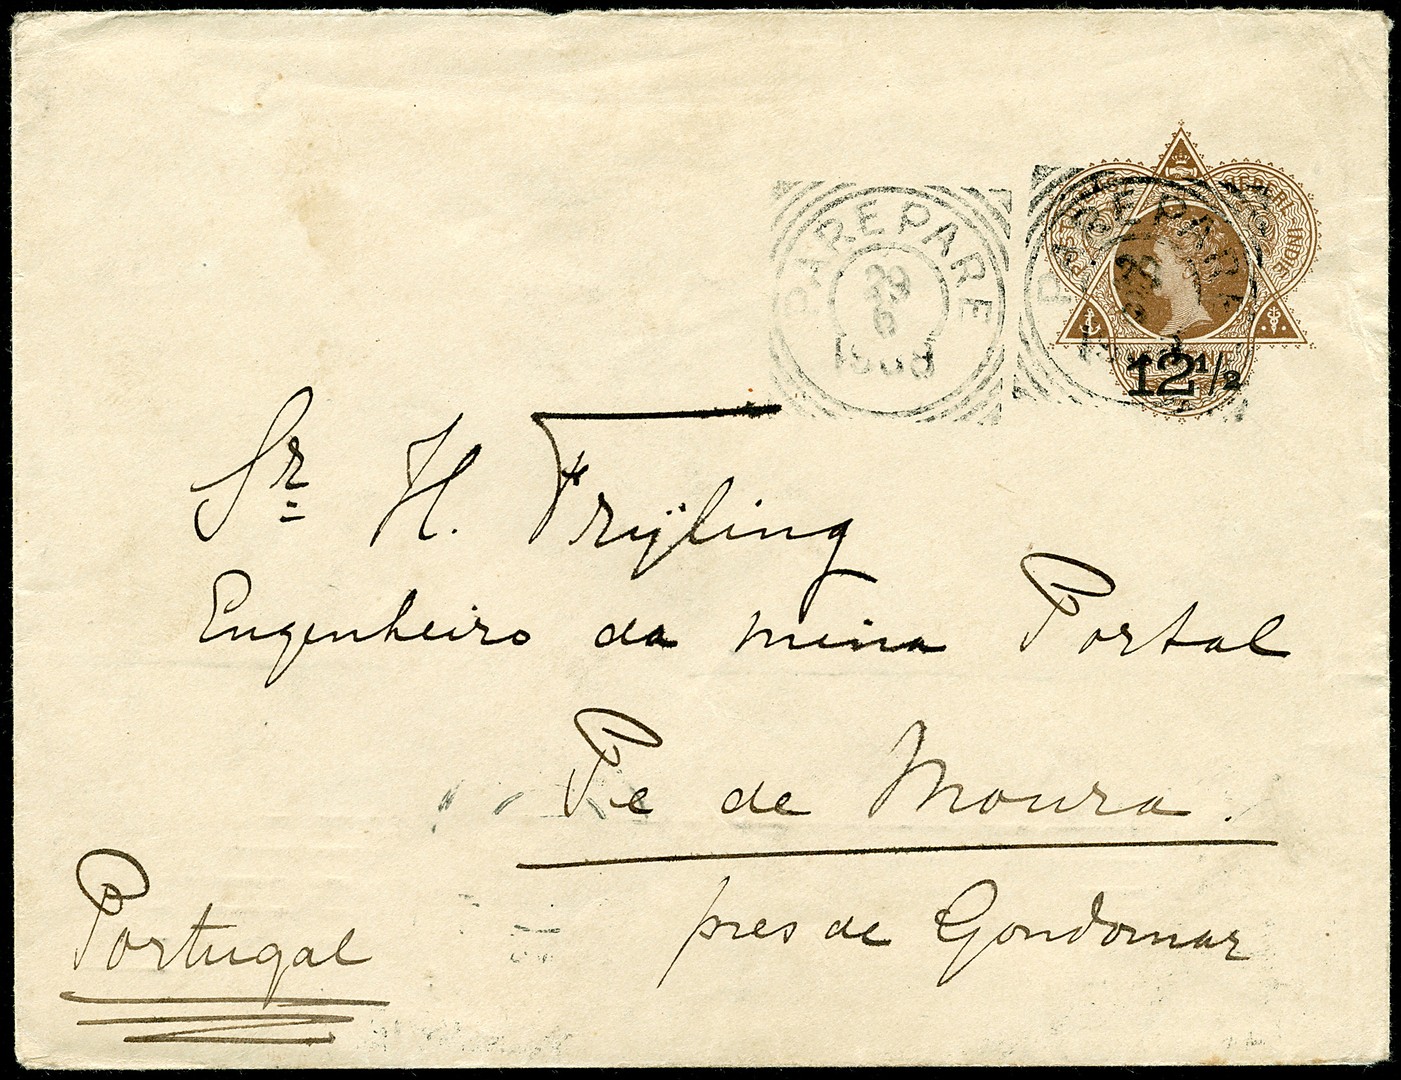 PAREPARE
29
6
1908
PAREPARE
29
NED. INDIE
12 1/2
Sr. H. Frÿling
Engenheiro da mina Portal
Pe de Moura.
pres de Gondomar
Portugal